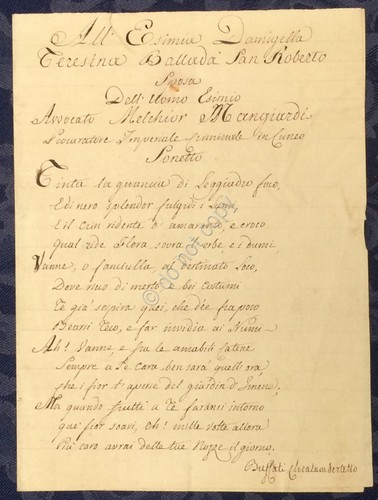 All' Esimia Damigella
Teresina Ballada San Roberto
Sposa
Dell' Uomo Esimio
Avvocato Melchior Mangiardi
Procuratore Imperiale Criminale in Cuneo
Sonetto
Tinta la guancia di leggiadro foco,
E di nero splendor fulgidi i lumi,
E il crin ridente d' amaranto, e croco
Qual ride Flora sovra l' erbe e i dumi
Vanne, o fanciulla al destinato loco,
Dove nuo di merto e bei costumi
Te già sospira quei, che dée fra poco
Bearsi teco, e far invidia ai Numi.
Ah! Vanne, e fra le amabili catene
Sempre a Te cara ben sarà quell' ora
che i fior t' aperse del giardin d' Imene,
Ma quando frutti a Te faransi intorno
que' fior soavi, Oh! mille volte allora
Più caro avrai delle tue Nozze il giorno.
Buffati
do not copy